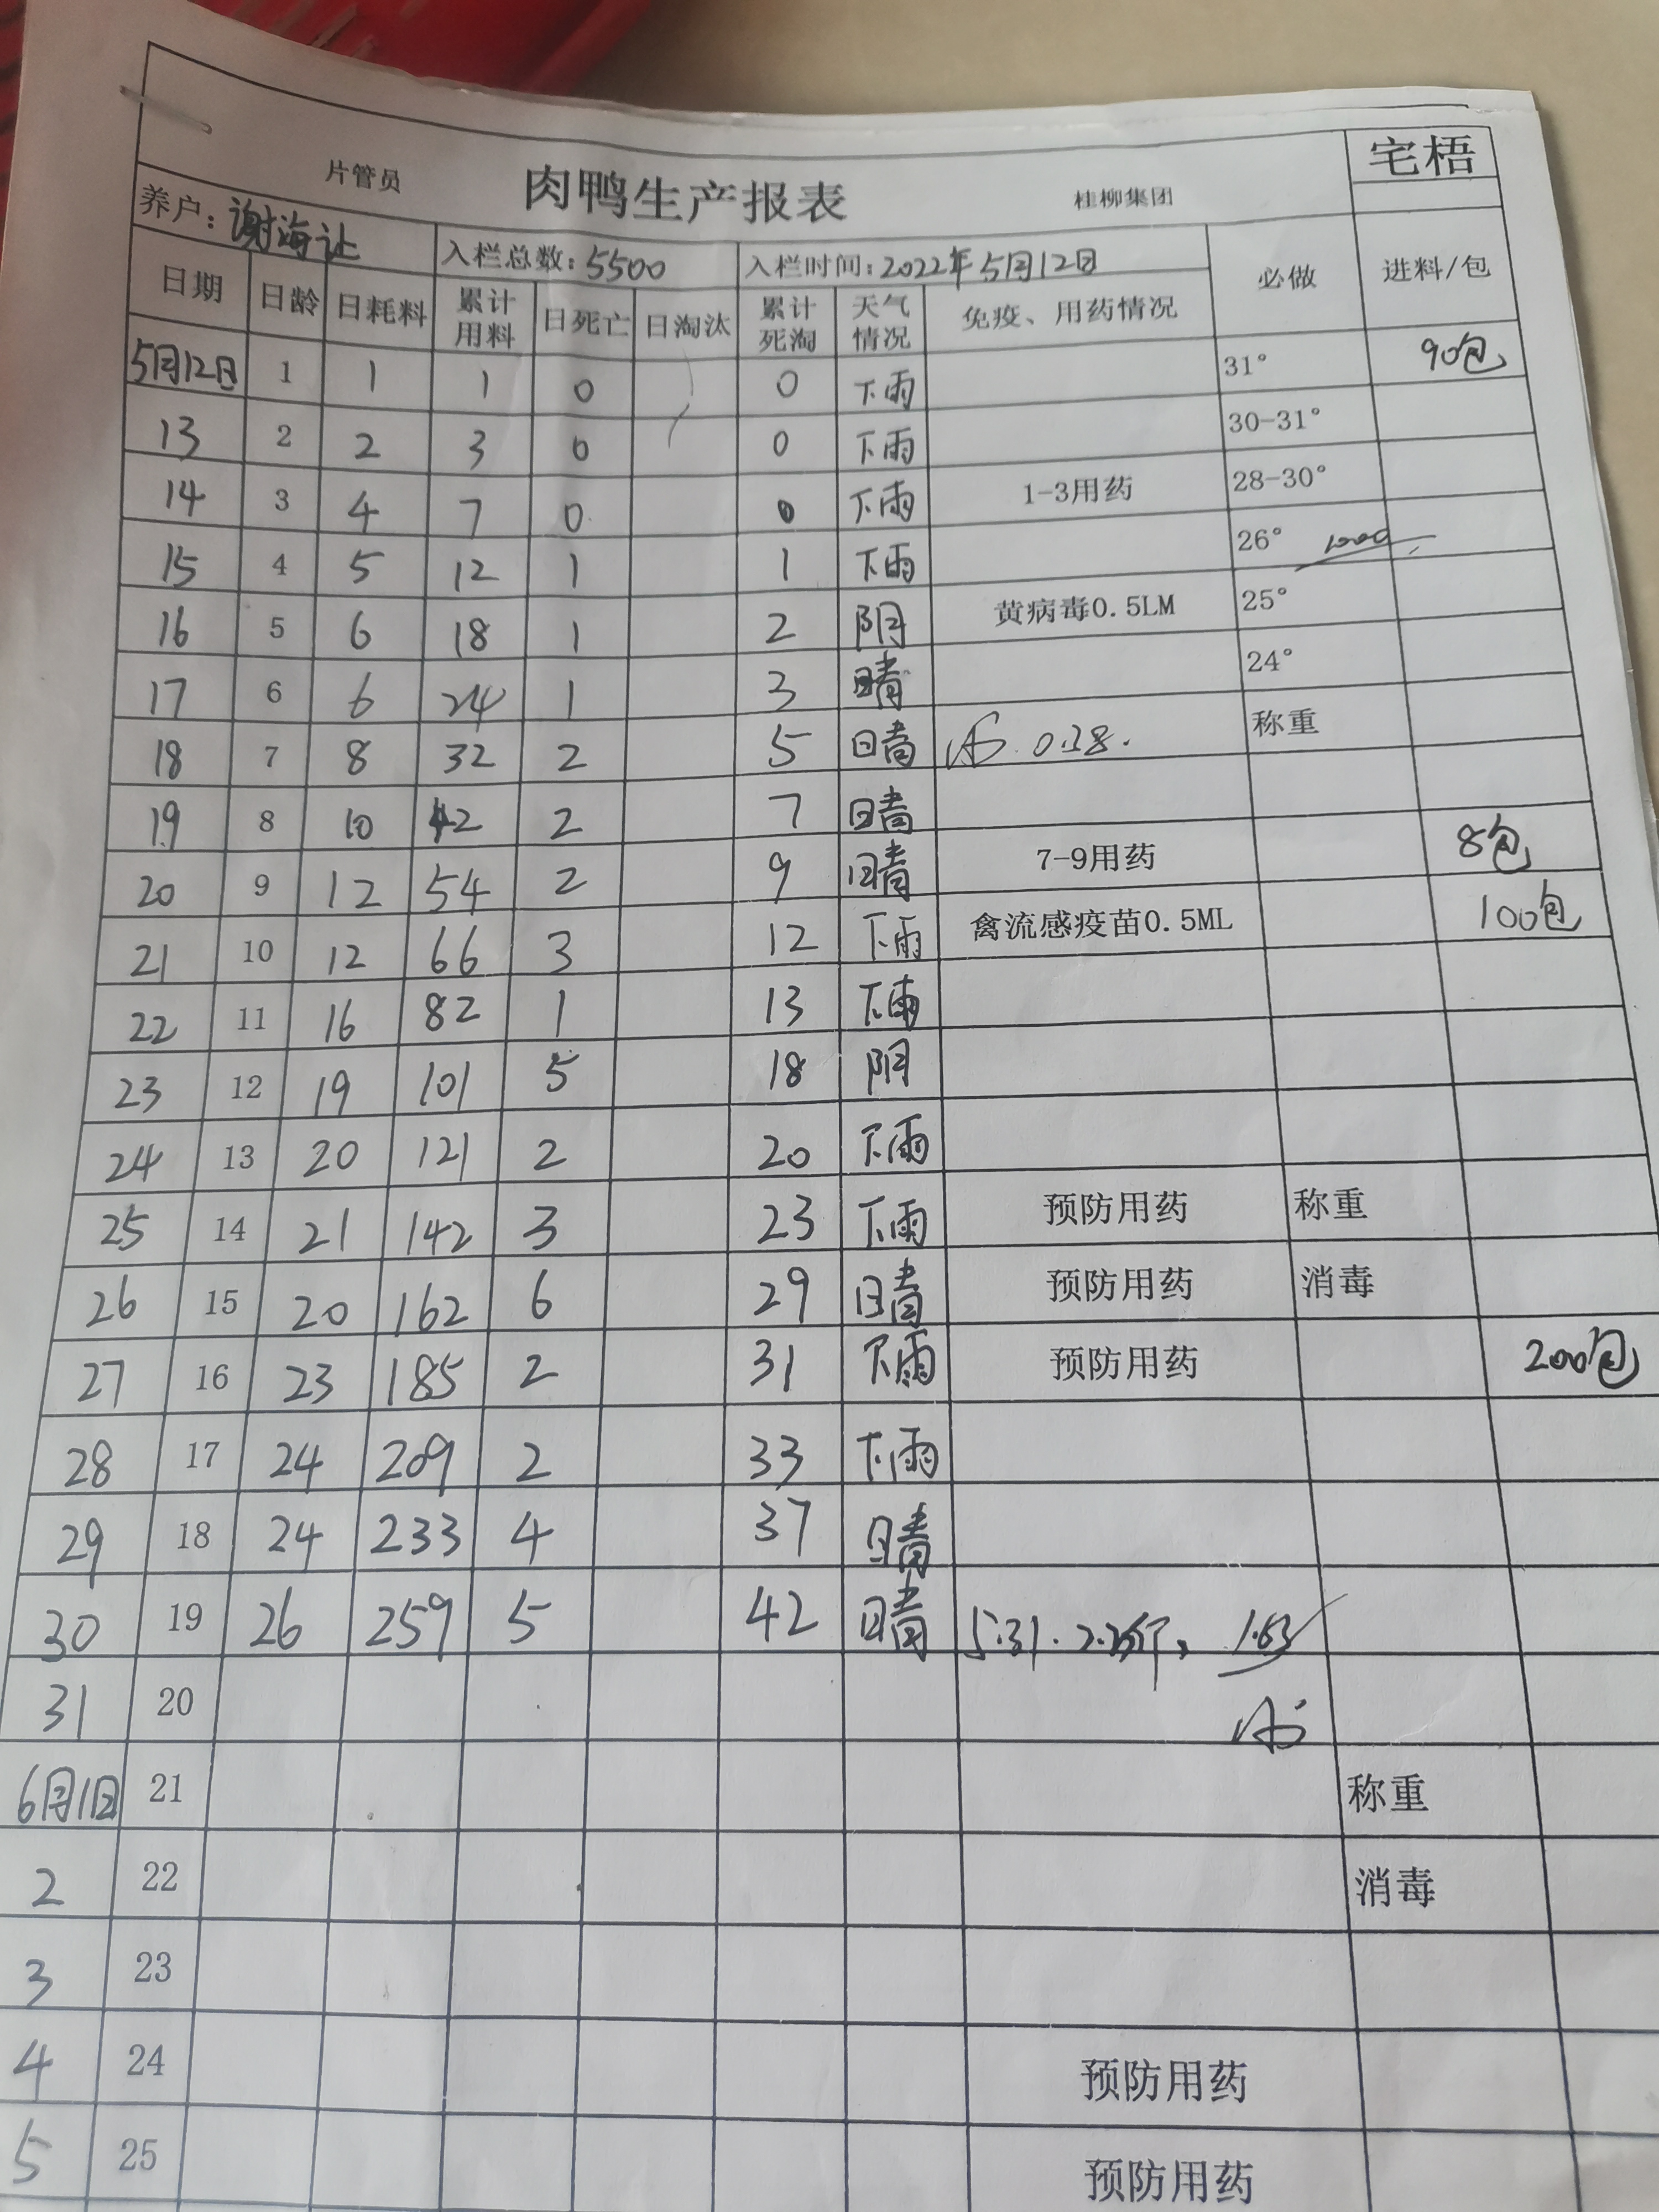 宅梧
片管员 肉鸭生产报表 桂柳集团
养户：谢海让 入栏总数：5500 入栏时间：2022年5月12日 必做 进料/包
日期 日龄 日耗料 累计用料 日死亡 日淘汰 累计死淘 天气情况 免疫、用药情况
5月12日 1 1 1 0 0 下雨 31° 90包
13 2 2 3 0 0 下雨 30-31°
14 3 4 7 0 0 下雨 1-3用药 28-30°
15 4 5 12 1 1 下雨 26°
16 5 6 18 1 2 阴 黄病毒0.5LM 25°
17 6 6 24 1 3 晴 24°
18 7 8 32 2 5 晴 0.38. 称重
19 8 10 42 2 7 晴
20 9 12 54 2 9 晴 7-9用药 8包
21 10 12 66 3 12 下雨 禽流感疫苗0.5ML 100包
22 11 16 82 1 13 下雨
23 12 19 101 5 18 阴
24 13 20 121 2 20 下雨
25 14 21 142 3 23 下雨 预防用药 称重
26 15 20 162 6 29 晴 预防用药 消毒
27 16 23 185 2 31 下雨 预防用药 200包
28 17 24 209 2 33 下雨
29 18 24 233 4 37 晴
30 19 26 259 5 42 晴 5.31. 1.63
31 20
6月1日 21 称重
2 22 消毒
3 23
4 24 预防用药
5 25 预防用药